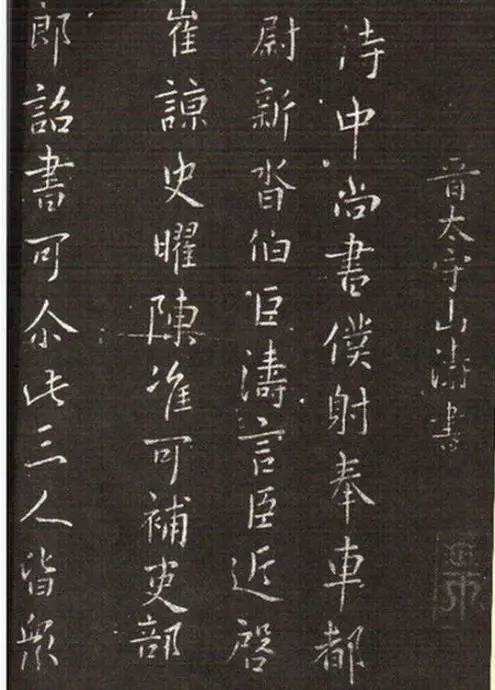 晉太守山濤書
侍中尚書僕射奉車都
尉新沓伯臣濤言臣近啓
崔諒史曜陳准可補吏部
郎詔書可尒此三人皆衆